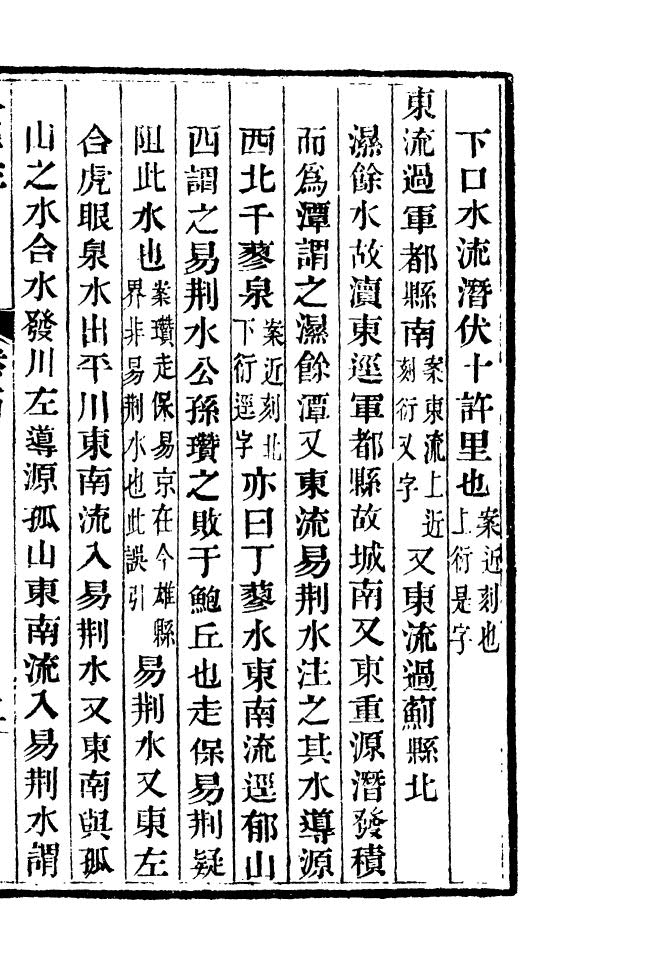 下口水流潛伏十許里也案近刻也上衍是字
東流過軍都縣南案東流上近刻衍又字又東流過薊縣北
濕餘水故瀆東逕軍都縣故城南又東重源潛發積
而爲潭謂之濕餘潭又東流易荆水注之其水導源
西北千蓼泉案近刻北下衍逕字亦曰丁蓼水東南流逕郁山
西謂之易荆水公孫瓚之敗于鮑丘也走保易荆疑
阻此水也案瓚走保易京在今雄縣界非易荆水也此誤引易荆水又東左
合虎眼泉水出平川東南流入易荆水又東南與孤
山之水合水發川左導源孤山東南流入易荆水謂